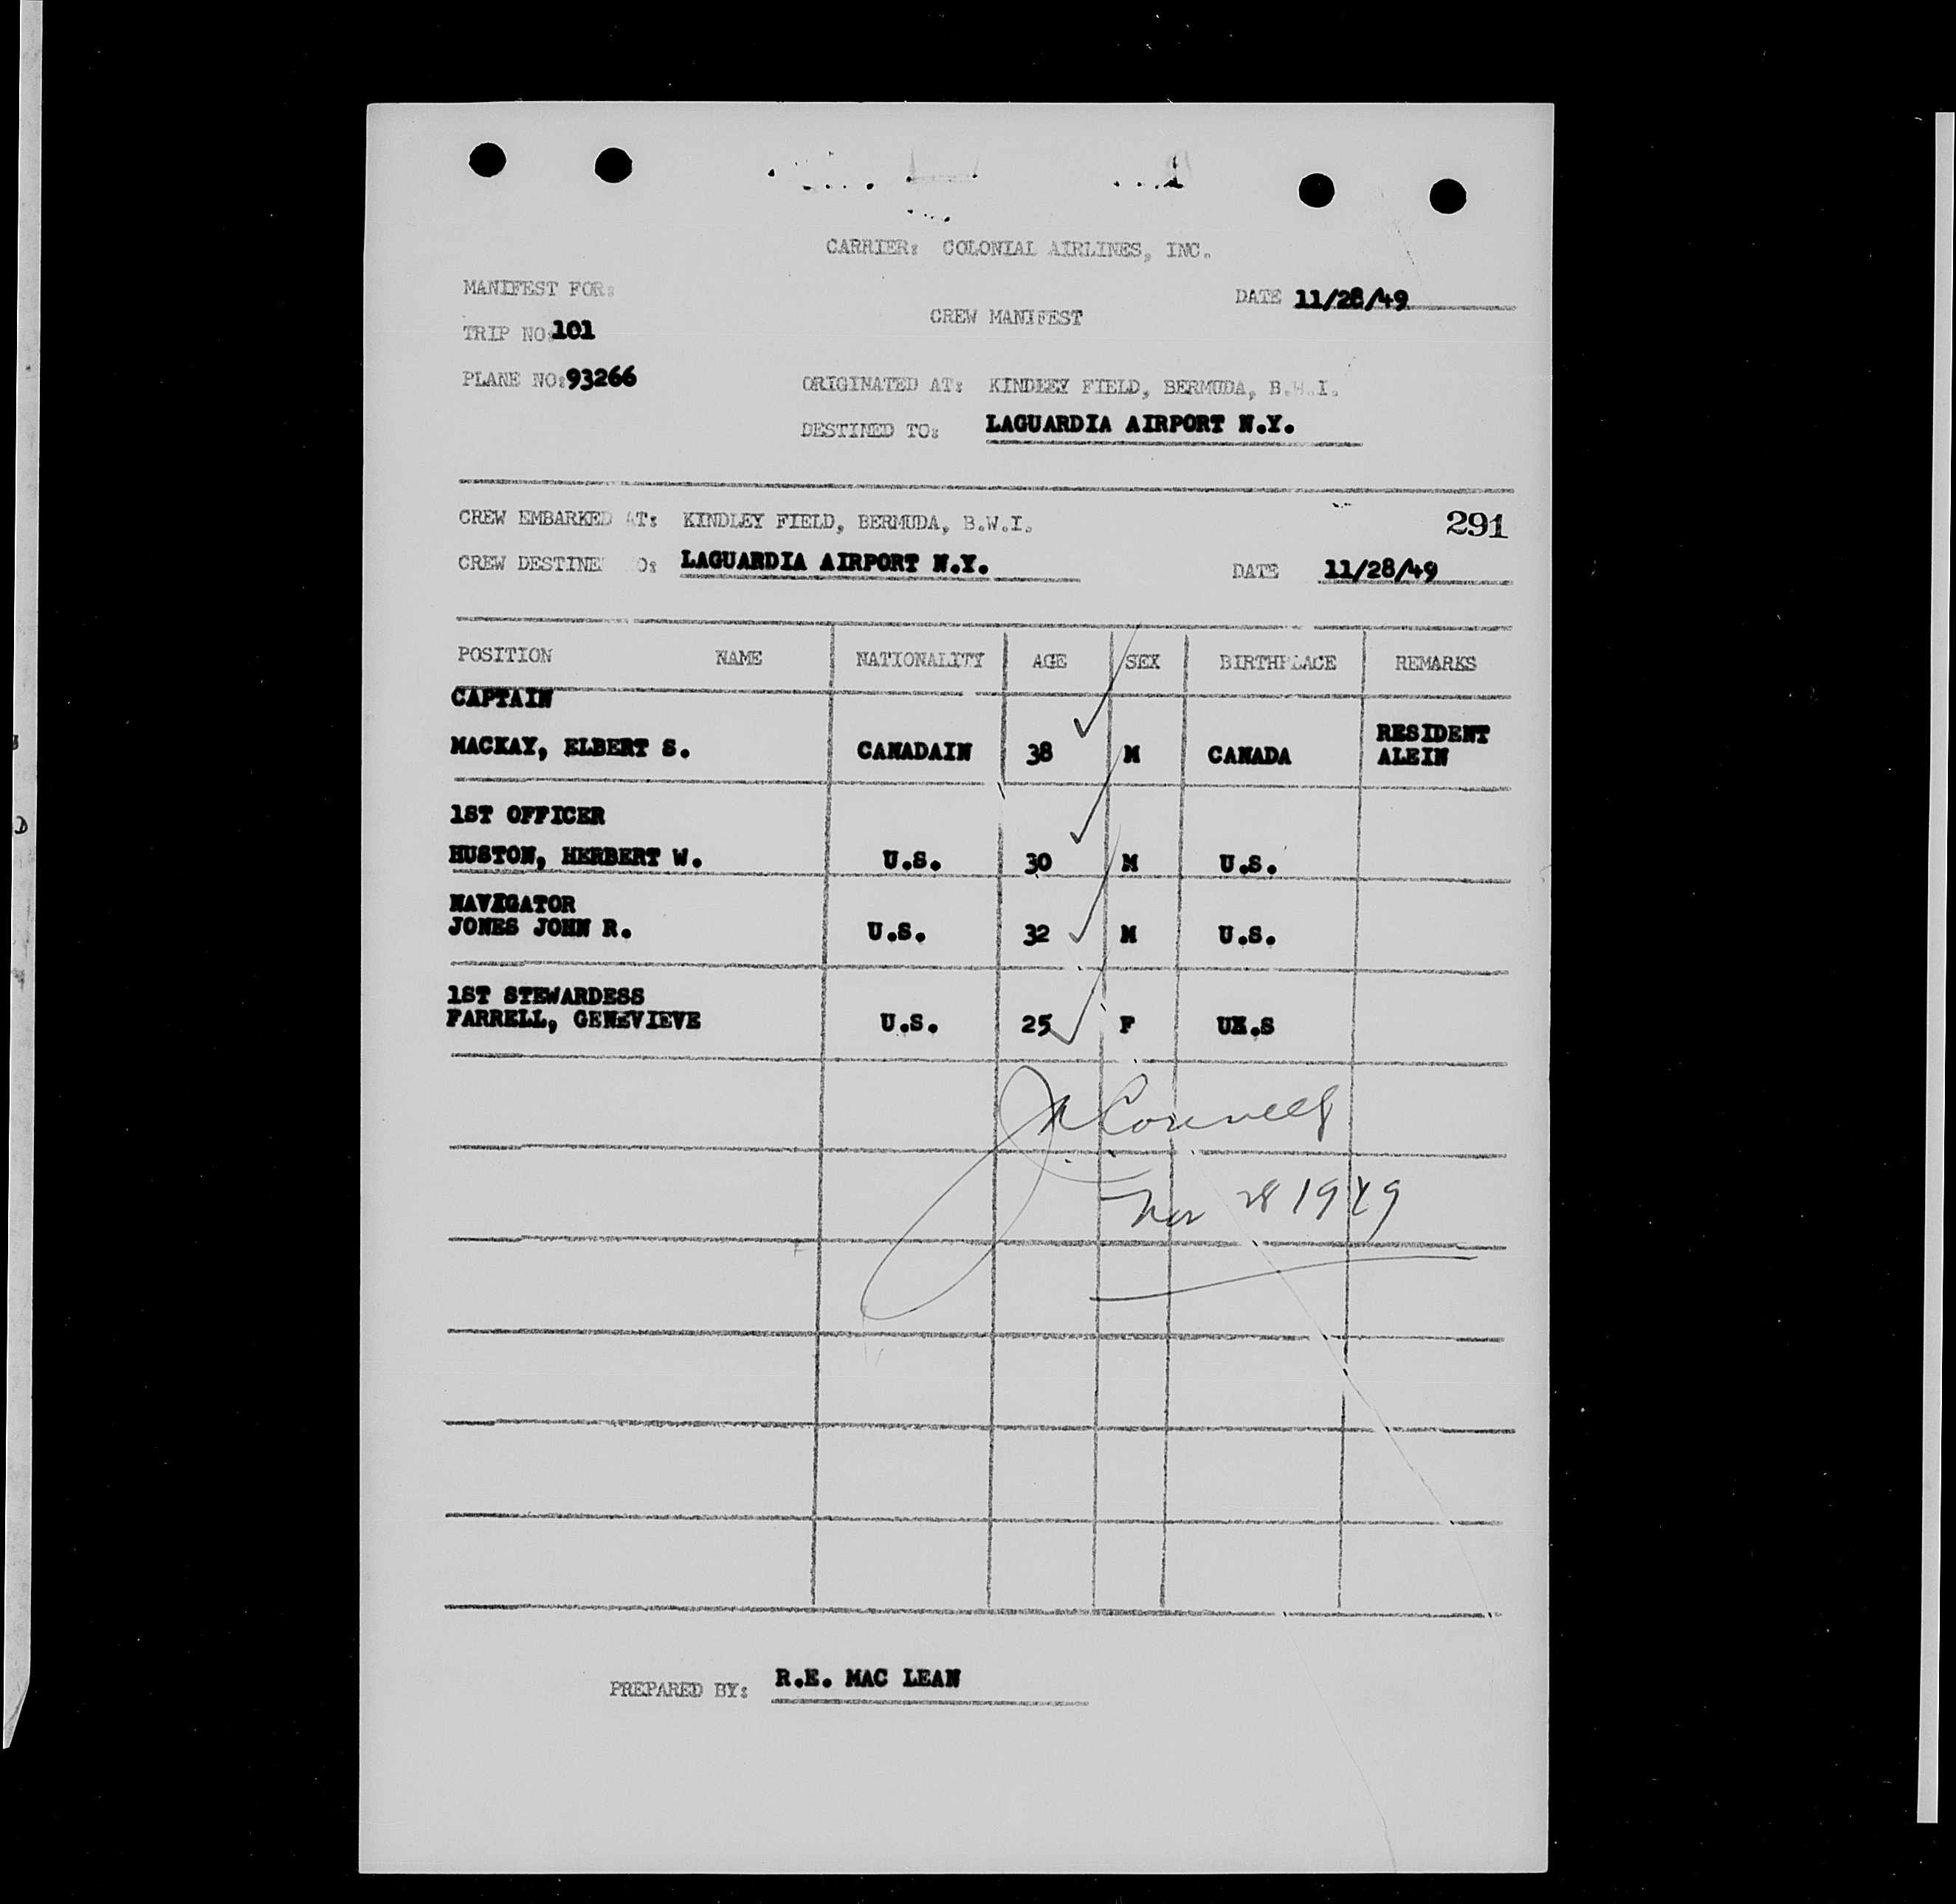 CARRIER: COLONIAL AIRLINES, INC.
MANIFEST FOR:
DATE 11/28/49
CREW MANIFEST
TRIP NO:101
PLANE NO:93266
ORIGINATED AT: KINDLEY FIELD, BERMUDA, B.W.I.
DESTINED TO: LAGUARDIA AIRPORT N.Y.
CREW EMBARKED AT: KINDLEY FIELD, BERMUDA, B.W.I.
291
CREW DESTINE O: LAGUARDIA AIRPORT N.Y. DATE 11/28/49
POSITION NAME NATIONALITY AGE SEX BIRTHPLACE REMARKS
CAPTAIN
MACKAY, ELBERT S. CANADAIN 38 M CANADA RESIDENT ALEIN
1ST OFFICER
HUSTON, HERBERT W. U.S. 30 M U.S.
NAVIGATOR
JONES JOHN R. U.S. 32 M U.S.
1ST STEWARDESS
FARRELL, GENEVIEVE U.S. 25 F UX.S
Nov 28 1949
PREPARED BY: R.E. MAC LEAN